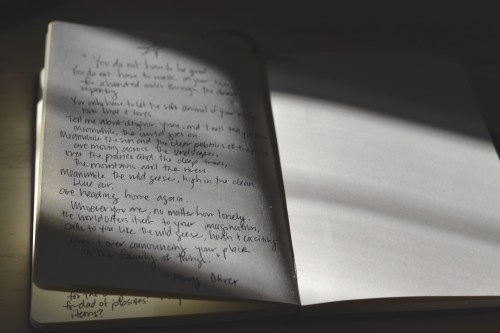 "You do not have to be good.
You do not have to walk on your knees
for a hundred miles through the desert
repenting
You only have to let the soft animal of your body
love what it loves.
Tell me about despair, yours, and I will tell you mine
Meanwhile, the world goes on.
Meanwhile the sun and the clear pebbles of the rain
are moving across the landscapes,
over the prairies and the deep trees,
the mountains and the rivers
Meanwhile the wild geese, high in the clean,
blue air,
are heading home again.
Whoever you are, no matter how lonely,
the world offers itself to your imagination,
calls to you like the wild geese, harsh & exciting
over & over announcing your place
in the family of things."
Mary Oliver
for the
items?